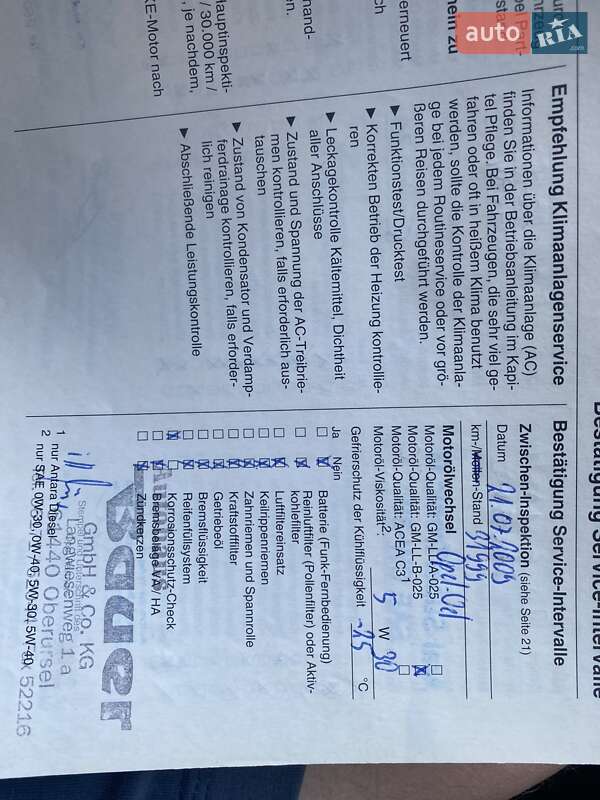 auto RIA .com
KE-Motor nach
, je nachdem,
/ 30.000 km /
auptinspekti-
nen.
nand-
erneuert
nein zu
Empfehlung Klimaanlagenservice
Informationen über die Klimaanlage (AC)
finden Sie in der Betriebsanleitung im Kapi-
tel Pflege. Bei Fahrzeugen, die sehr viel ge-
fahren oder oft in heißem Klima benutzt
werden, sollte die Kontrolle der Klimaanla-
ge bei jedem Routineservice oder vor grö-
ßeren Reisen durchgeführt werden.
► Funktionstest/Drucktest
► Korrekten Betrieb der Heizung kontrollie-
ren
► Leckagekontrolle Kältemittel, Dichtheit
aller Anschlüsse
► Zustand und Spannung der AC-Treibrie-
men kontrollieren, falls erforderlich aus-
tauschen
► Zustand von Kondensator und Verdamp-
ferdrainage kontrollieren, falls erforder-
lich reinigen
► Abschließende Leistungskontrolle
Bestätigung Service-Intervalle
Bestätigung Service-Intervalle
Zwischen-Inspektion (siehe Seite 21)
Datum 21.07.2009
km-/Meilen-Stand 31999
Motorölwechsel Opel Öl
Motoröl-Qualität: GM-LL-A-025
Motoröl-Qualität: GM-LL-B-025
Motoröl-Qualität: ACEA C3 1
Motoröl-Viskosität: 2 5 W 30
Gefrierschutz der Kühlflüssigkeit -25 °C
Ja Nein
Batterie (Funk-Fernbedienung)
Reinluftfilter (Pollenfilter) oder Aktiv-
kohlefilter
Luftfiltereinsatz
Keilrippenriemen
Zahnriemen und Spannrolle
Kraftstofffilter
Getriebeöl
Bremsflüssigkeit
Reifenfüllsystem
Korrosionsschutz-Check
Bremsbeläge VA / HA
Zündkerzen
Bauer
GmbH & Co. KG
Langwiesenweg 1 a
61440 Oberursel
52216
1 nur Antara Diesel
2 nur SAE 0W-30, 0W-40, 5W-30, 5W-40